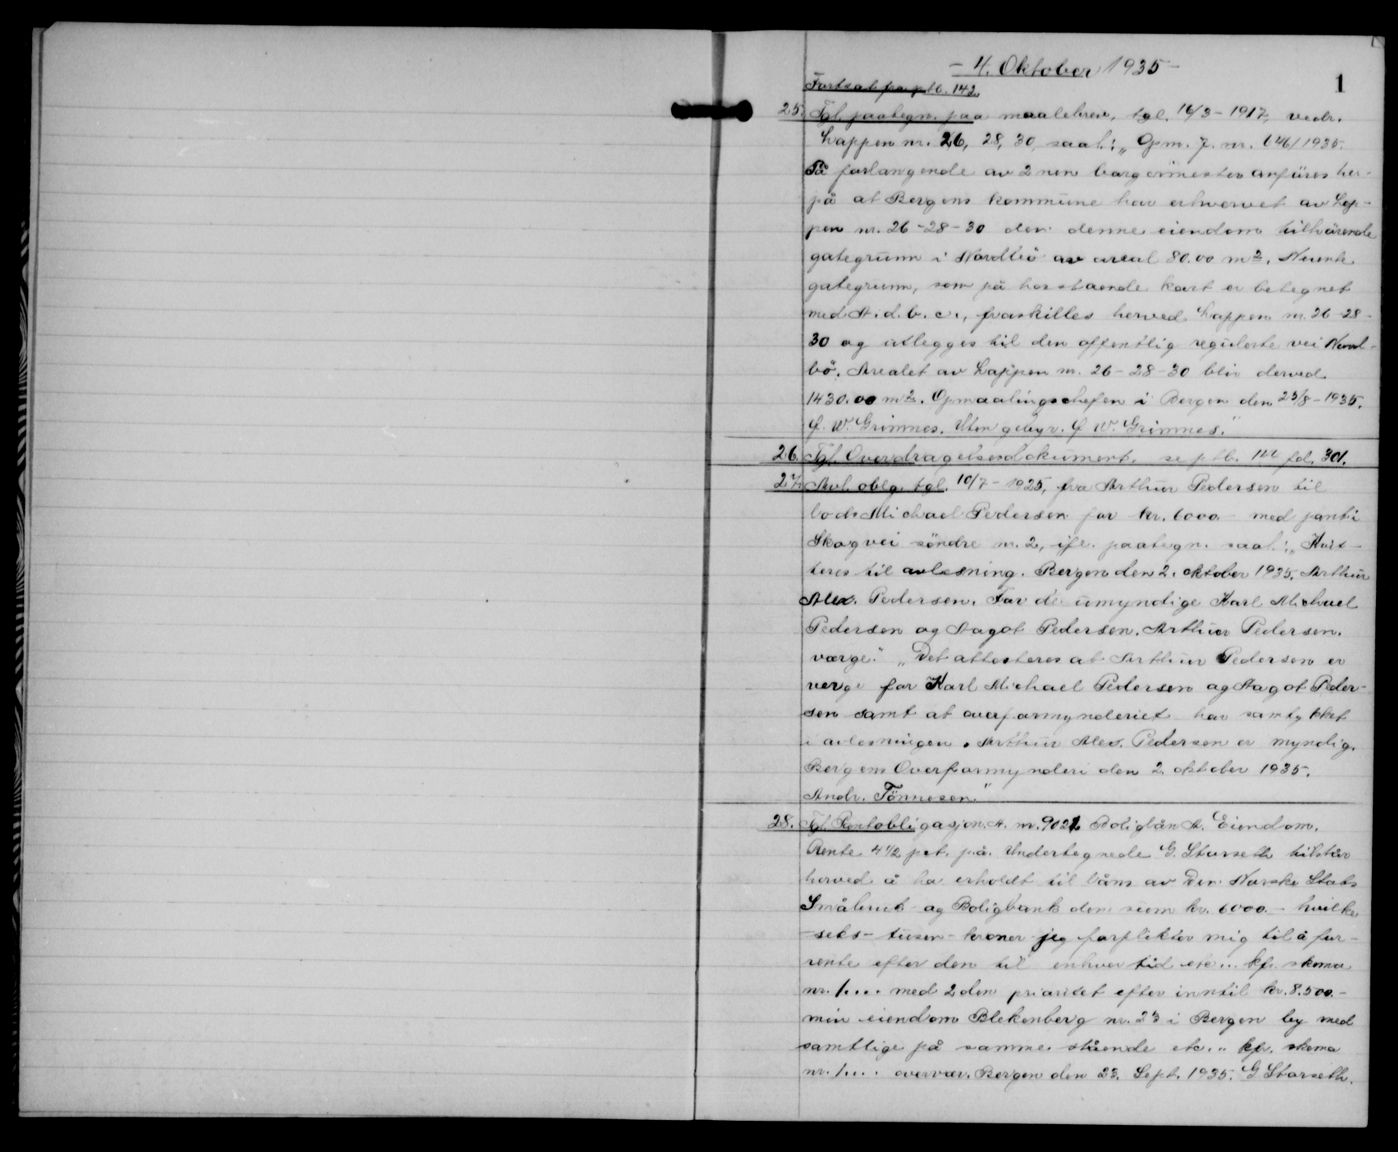 - 4. Oktober 1935 -
1
Fortsat fra ptb. 142.
25. Tgl. paategn. paa maalebrev, tgl. 16/3 - 1917, vedr.
Lappen nr. 26, 28, 30, saal.: „ Opm. J. nr. 646/1935.
På forlangende av 2nen borgermester anføres her-
på at Bergens kommune har erhvervet av Lap-
pen nr. 26 - 28 - 30 den denne eiendom tilhørende
gategrunn i Nordbö av areal 80.00 m². Nevnte
gategrunn, som på hosstaende kart er betegnet
med A. d. b. c., fraskilles herved Lappen nr. 26 - 28 -
30 og utlegges til den offentlig regulerte vei Nord-
bö. Arealet av Lappen nr. 26 - 28 - 30 blir derved
1430.00 m². Opmaalingschefen i Bergen den 23/8 - 1935.
f. W. Grimnes. Uten gebyr. f. W. Grimnes."
26. Tgl. Overdragelsesdokument. se ptb. 144 fol. 301.
27. Avl. oblg. tgl. 10/7 - 1925, fra Arthur Pedersen til
bods Michael Pedersen for kr. 6000 - med pant i
Skogvei söndre nr. 2, ifl. paategn. saal.: „ Kvit-
teres til avlesning. Bergen den 2. oktober 1935. Arthur
Alex. Pedersen. For de umyndige Karl Michael
Pedersen og Aagot Pedersen. Arthur Pedersen.
verge." „ Det attesteres at Arthur Pedersen er
verge for Karl Michael Pedersen og Aagot Peder-
sen samt at overformynderiet har samtykket
i avlesningen. Arthur Alex. Pedersen er myndig.
Bergens Overformynderi den 2. oktober 1935.
Andr. Tönnesen."
28. Tgl. Pantobligasjon. A. nr. 9021 Boliglån A. Eiendom.
Rente 4 1/2 pct. på. Undertegnede G. Storseth tilstår
herved å ha erholdt til låns av Den Norske Stats
Småbruk- og Boligbank den sum kr. 6000.- hvilke
- seks - tusen - kroner jeg forplikter mig til å for-
rente efter den til enhver tid etc... kfr. skema
nr. 1.... med 2den prioritet efter inntil kr. 8.500.-
min eiendom Blekenberg nr. 23 i Bergen by med
samtlige på samme stående etc.. kfr. skema
nr. 1.... overvær. Bergen den 23. Sept. 1935. G Storseth.